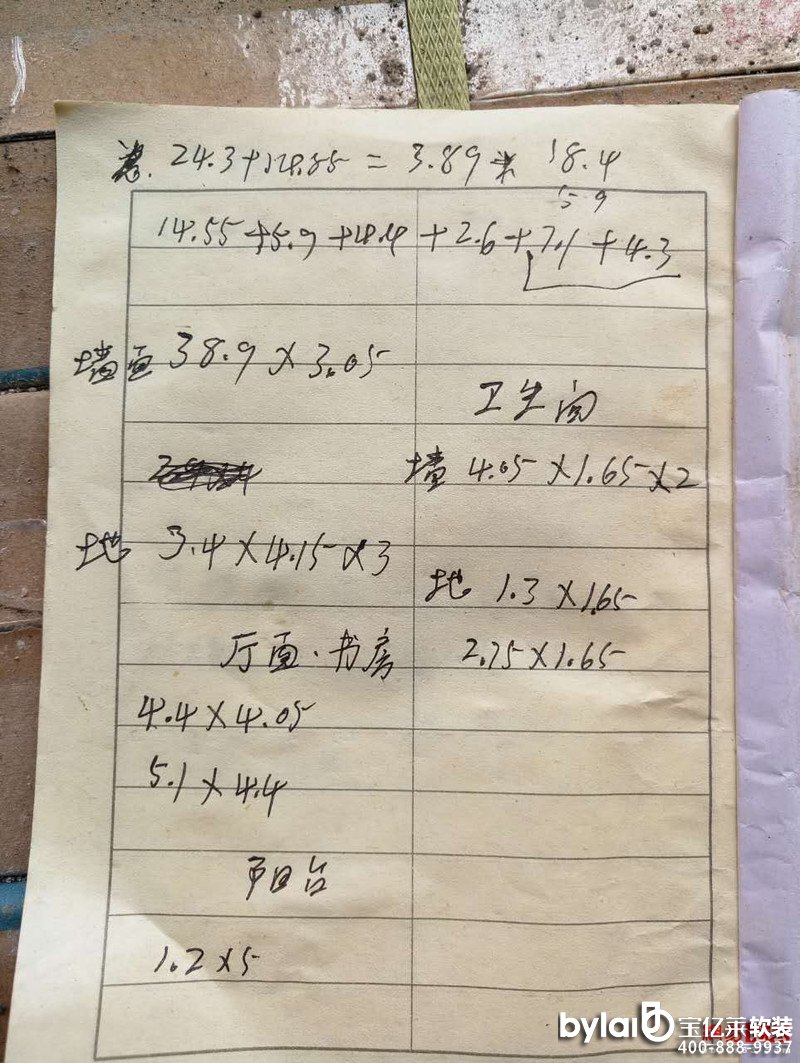 24.3+14.55 = 3.89 18.4
5 9
14.55 +5.9 +18.4 + 2.6 + 7.1 + 4.3
墙面 38.9 × 3.05
卫生间
墙 4.05 × 1.65 × 2
地 3.4 × 4.15 × 3
地 1.3 × 1.65
厅面·书房
2.75 × 1.65
4.4 × 4.05
5.1 × 4.4
阳台
1.2 × 5
bylai 宝亿莱软装
400-888-9937